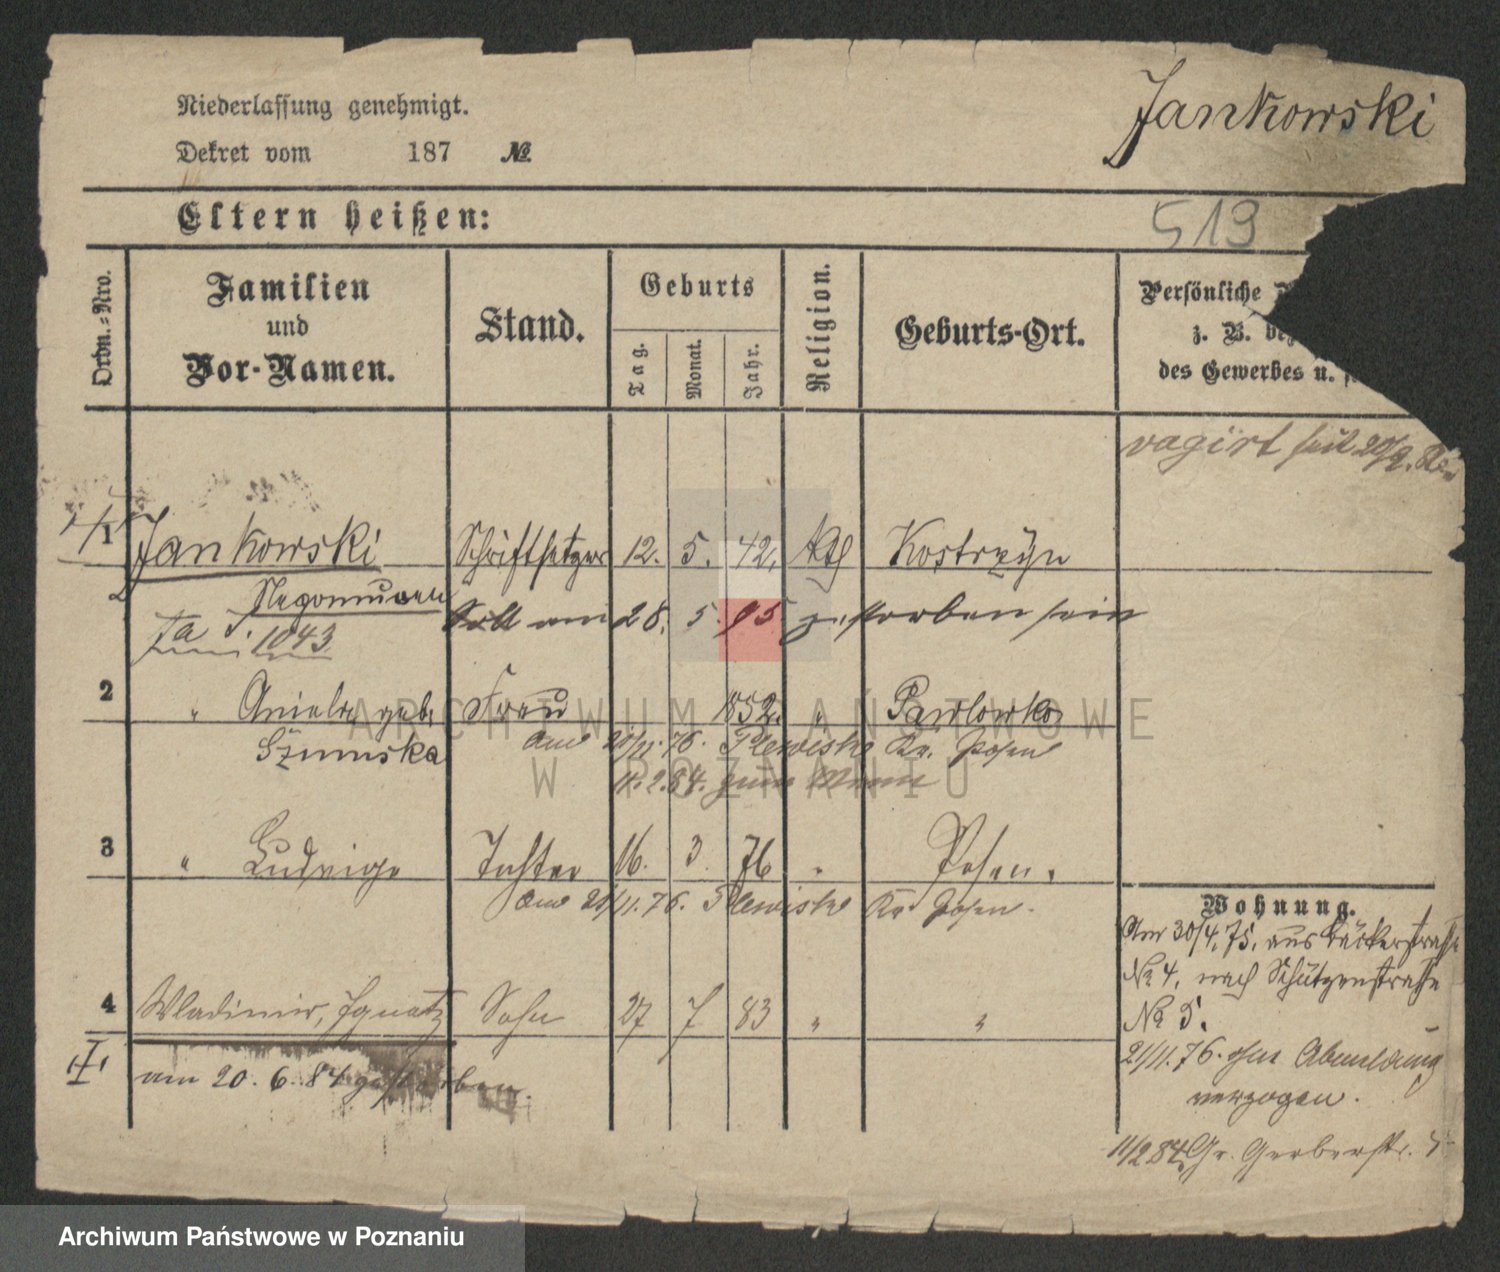 Jankowski
Niederlassung genehmigt.
Dekret vom 187 №
Eltern heißen:
519
Ordn.-Nro.
Familien
und
Vor-Namen.
Stand.
Geburts
Tag.
Monat.
Jahr.
Religion.
Geburts-Ort.
Persönliche
z. B.
des Gewerbes u.
vagirt seit 20/9.
1 Jankowski Schriftsetzer 12. 5. 42. kth Kostrzyn
Nepomucen soll am 28. 5. 95 gestorben sein
1043
2 " Aniela geb. Frau 1852. " Pawlowko
Szumska am 21/11.76. Plewisk Kr. Posen
11.2.84. zum Mann
3 " Ludwiga Tochter 16. 3. 76 " Posen.
am 21/11.76. Plewisk Kr. Posen.
4 Wladimir, Ignatz Sohn 27 7 83 " "
am 20.6.84 gestorben.
Wohnung.
Am 30/4.75. aus Bäckerstrasse
№ 4. nach Schützenstrasse
№ 5.
21/11.76. ohne Abmeldung
verzogen.
11/2 84 Gr. Gerberstr.
ARCHIWUM PAŃSTWOWE
W POZNANIU
Archiwum Państwowe w Poznaniu